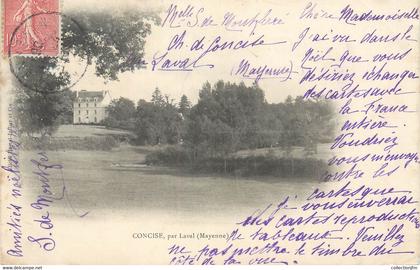 Melle S. de Montfort
Ch. de Concise
par Laval
(Mayenne)
Chère Mademoiselle
J'ai vu dans le
Noël que vous
désiriez échanger
des cartes avec
la France
entière.
Voudriez
vous m'envoyer
contre les
cartes que
je vous enverrai
des cartes reproductions
de tableaux. Veuillez
ne pas mettre le timbre du
côté de la vue.
Amitiés
S. de Montfort
CONCISE, par Laval (Mayenne)